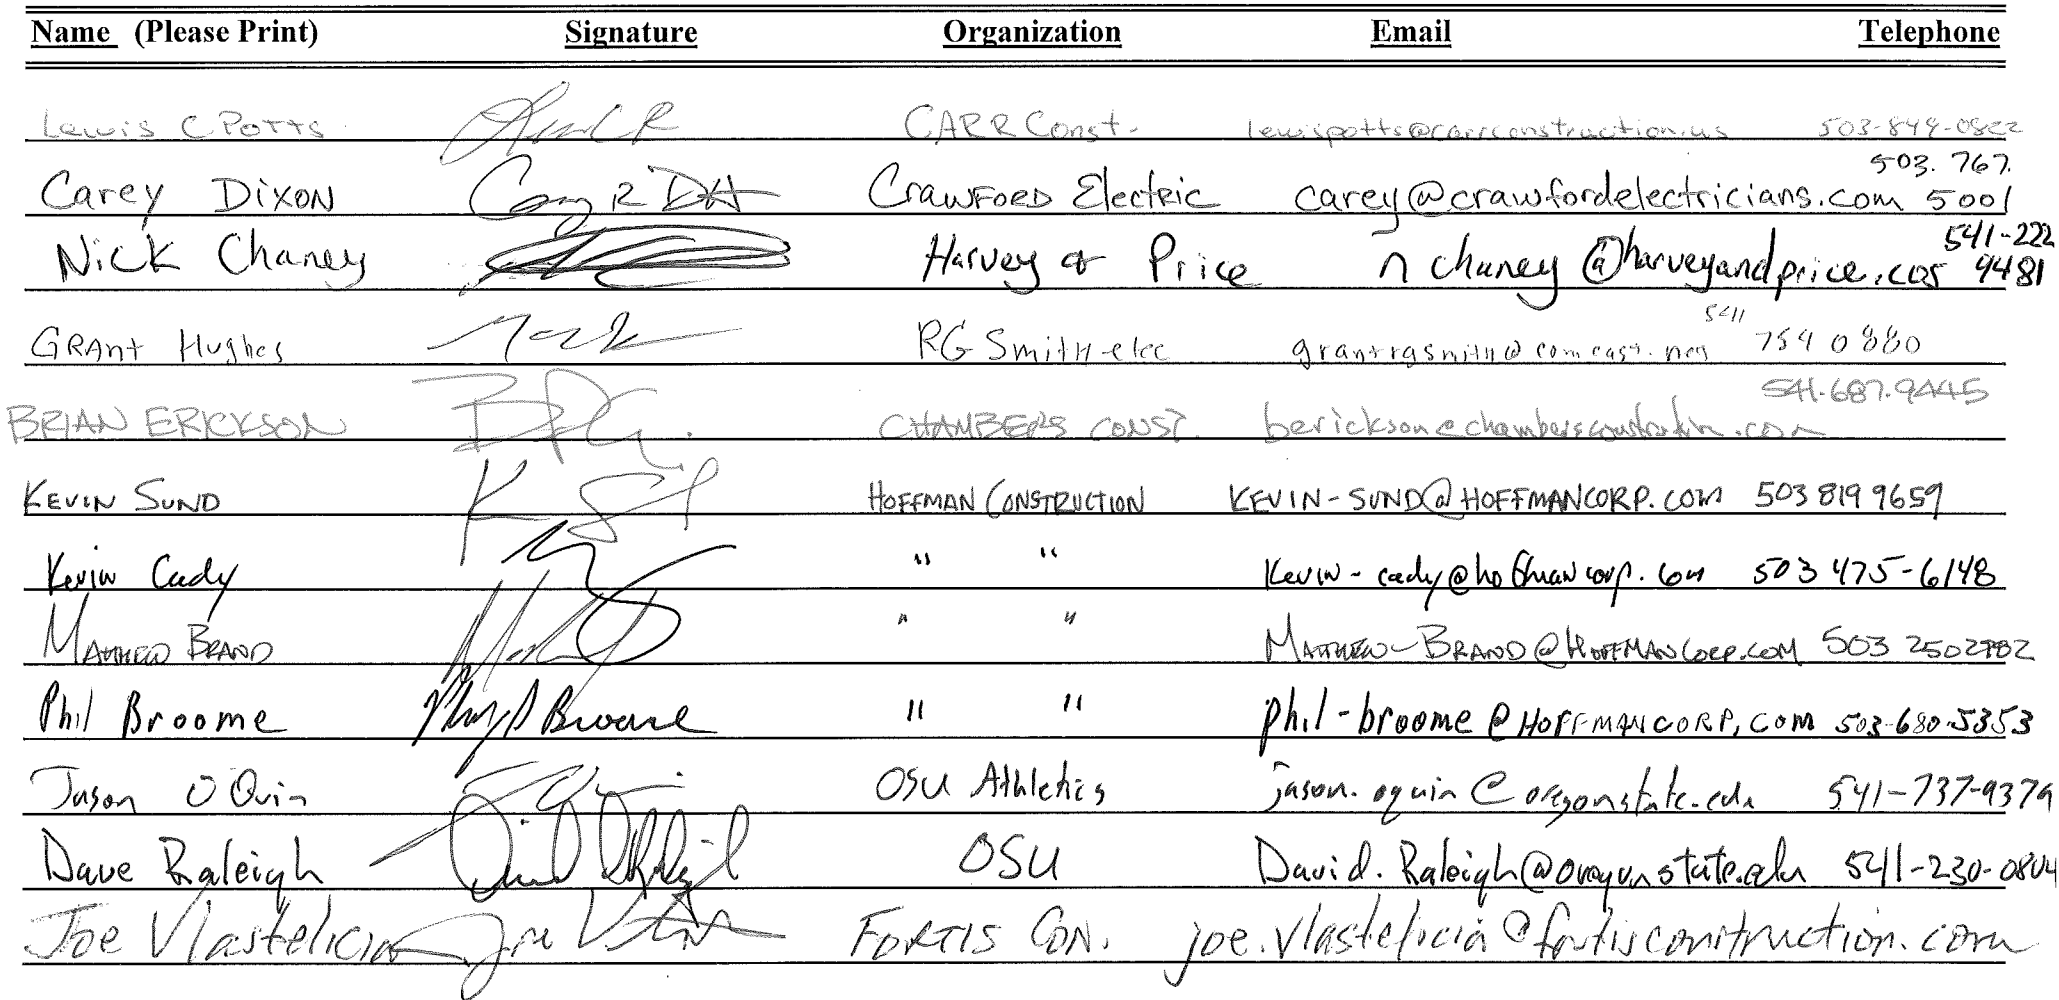 Name (Please Print) Signature Organization Email Telephone
Lewis C Potts CARR Const. lewispotts@carrconstruction.us 503-844-0822
503. 767.
Carey Dixon Crawford Electric carey@crawfordelectricians.com 5001
541-222
Nick Chaney Harvey & Price nchaney@harveyandprice.com 9481
541
Grant Hughes RG Smith elec grantrgsmith@comcast.net 754 0880
541-687-9445
BRIAN ERICKSON CHAMBERS CONST. berickson@chambersconstruction.com
KEVIN SUND HOFFMAN CONSTRUCTION KEVIN-SUND@HOFFMANCORP.COM 503 819 9659
Kevin Cady " " Kevin-cady@hoffmancorp.com 503 475-6148
MATTHEW BRAND " " MATTHEW-BRAND@HOFFMANCORP.COM 503 2502982
Phil Broome Broome " " phil-broome@HOFFMANCORP.COM 503-680-5353
Jason O'Quin OSU Athletics jason.oquin@oregonstate.edu 541-737-9379
Dave Raleigh OSU David.Raleigh@oregonstate.edu 541-230-0804
Joe Vlastelicia FORTIS CON. joe.vlastelicia@fortisconstruction.com